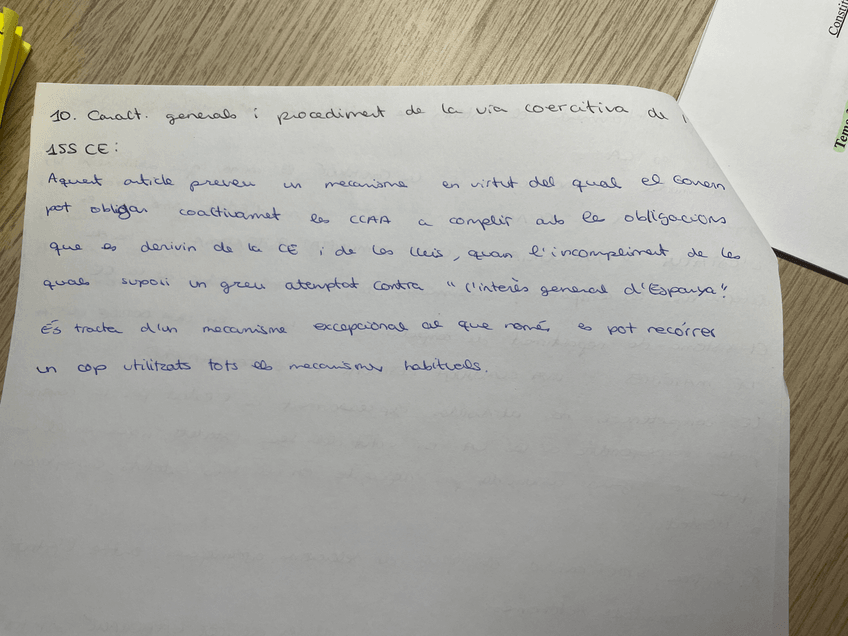 10. Caract. generals i procediment de la via coercitiva de l
155 CE:
Aquest article preveu un mecanisme en virtut del qual el Govern
pot obligar coactivamet les CCAA a complir amb les obligacions
que es derivin de la CE i de les lleis, quan l'incompliment de les
quals suposi un greu atemptat contra "l'interès general d'Espanya".
És tracta d'un mecanisme excepcional al que només es pot recórrer
un cop utilitzats tots els mecanismes habituals.
Constit
Tema